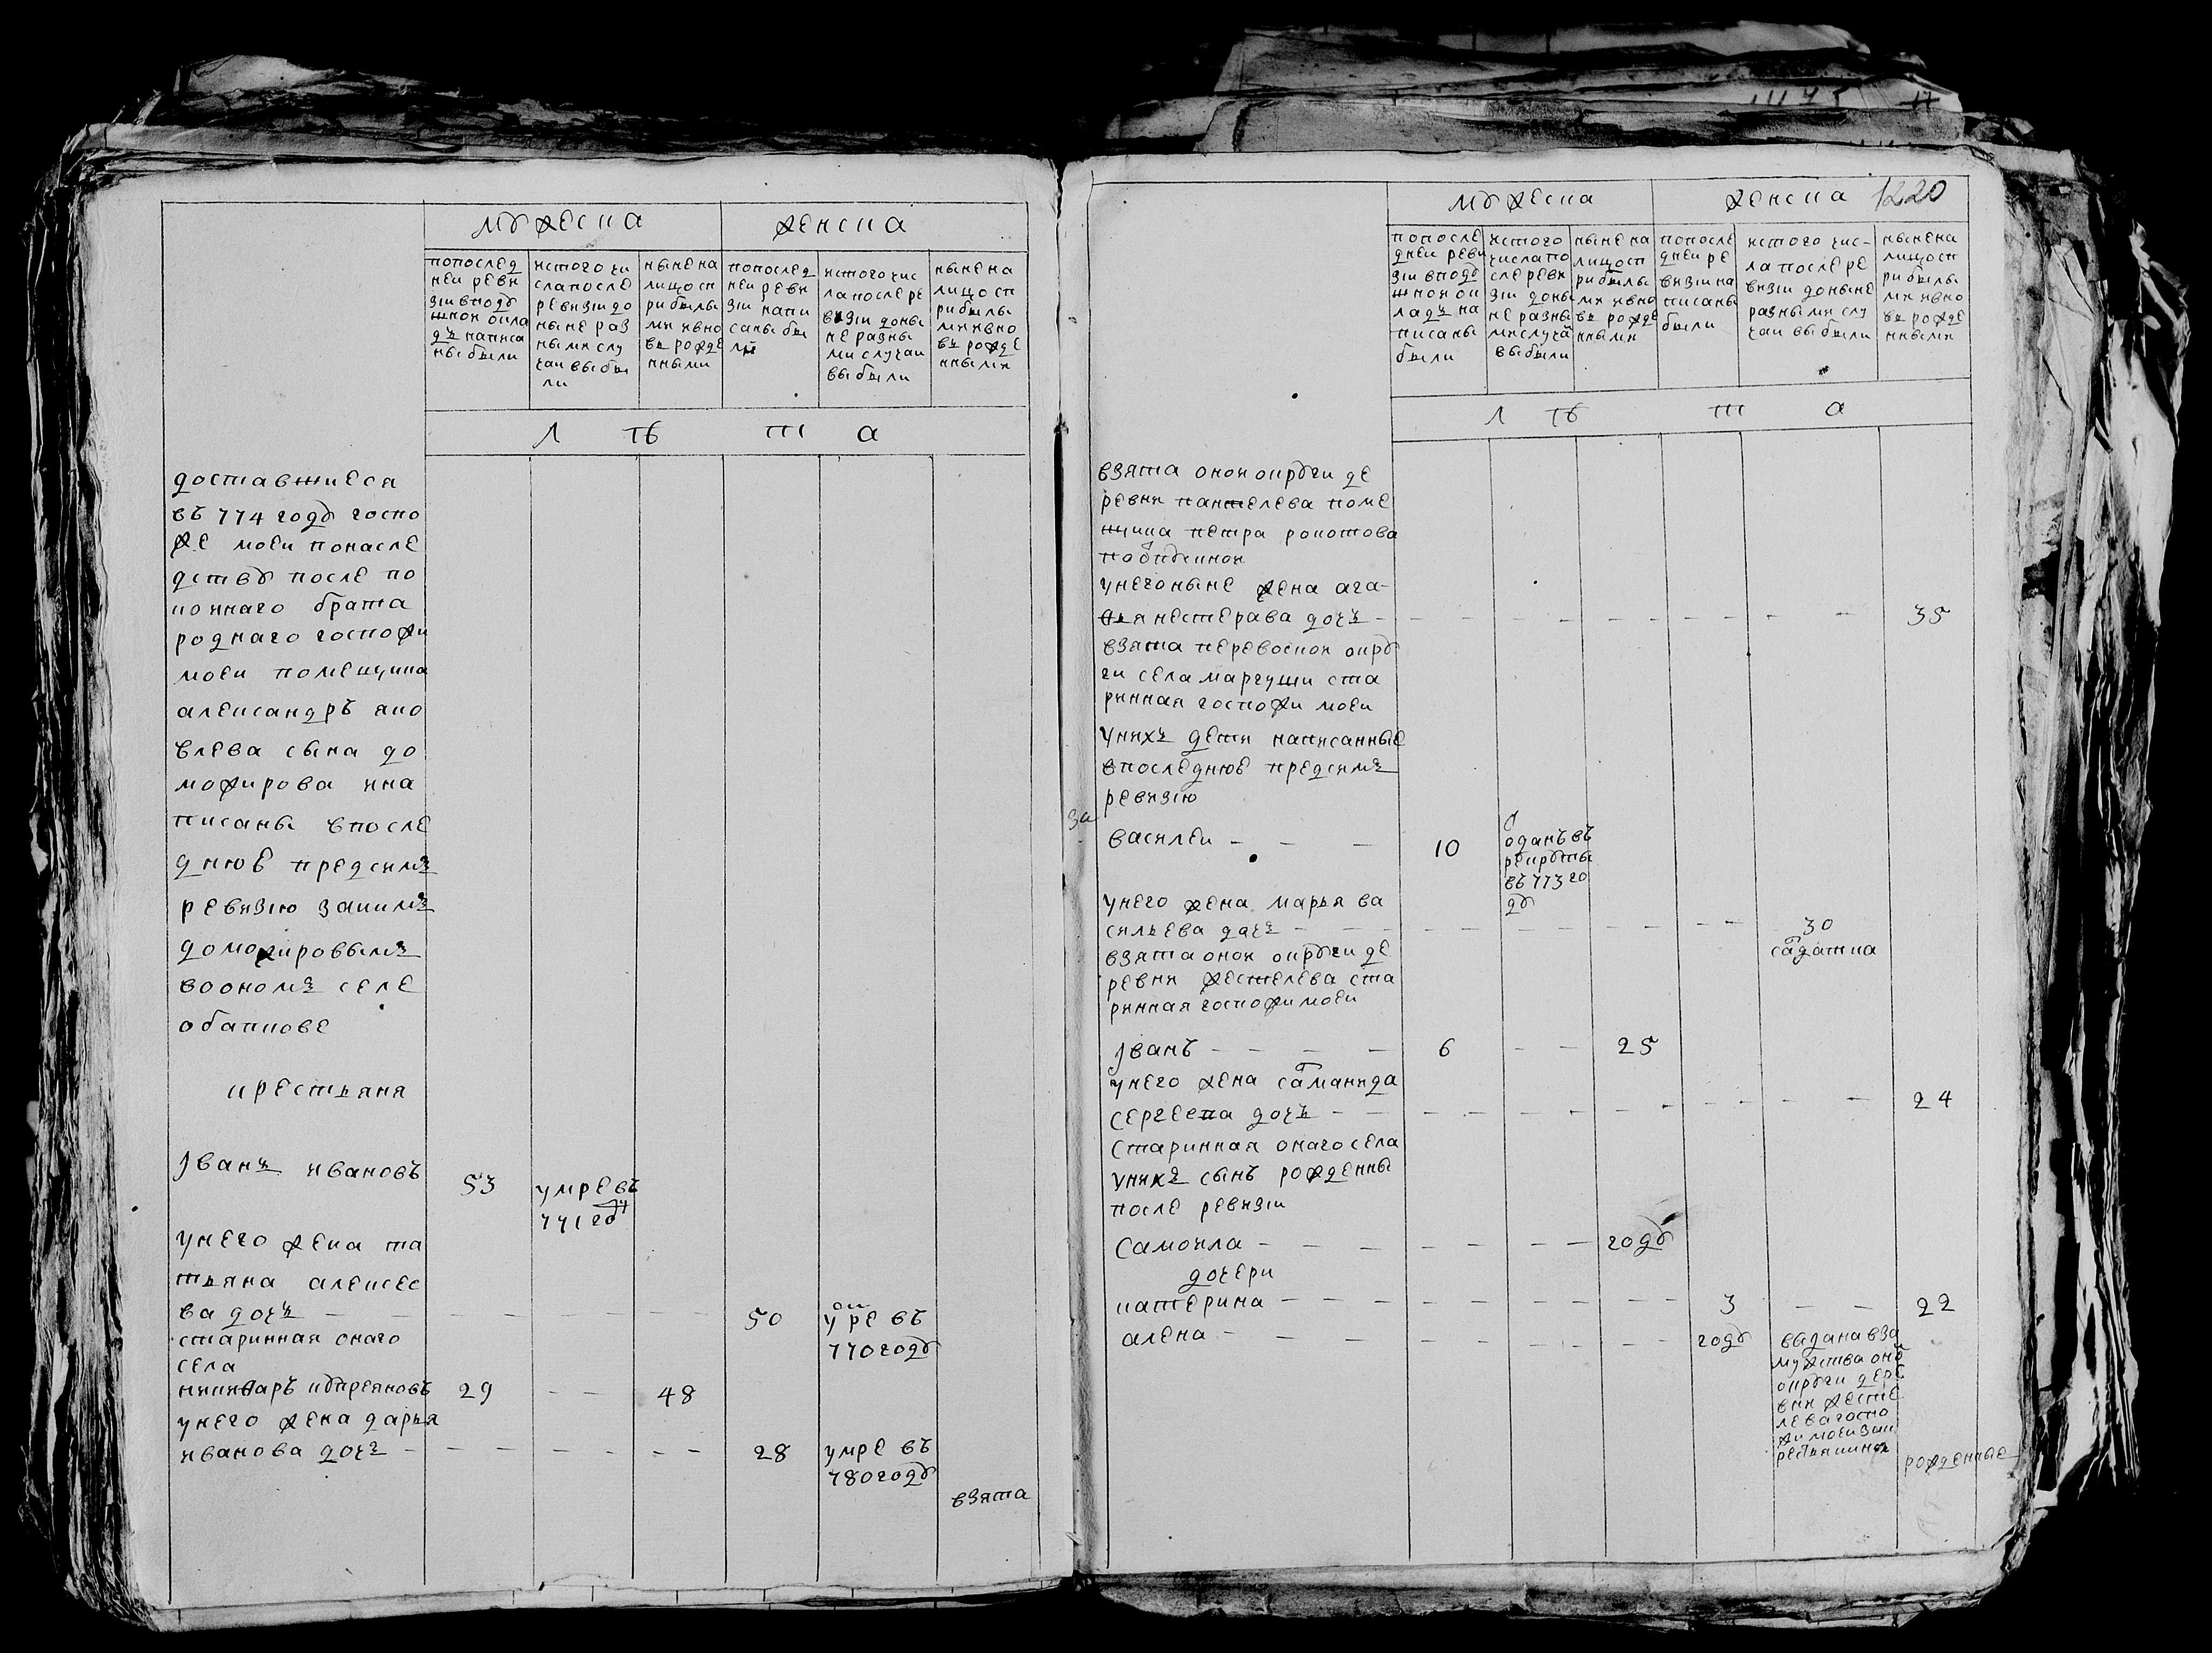 мужеска
женска
по послед
неи реви
зіи в поду
шнои окла
дъ написа
ны были
ис того чи
сла после
ревизіи до
ныне раз
ными слу
чаи выбы
ли
ныне на
лицо сп
рибылы
ми и вно
въ рожде
нными
по послед
неи реви
зіи напи
саны бы
ли
ис того чис
ла после ре
визіи доны
не разны
ми случаи
выбыли
ныне на
лицо сп
рибылы
ми и вно
въ рожде
нными
л ѣ т а
доставшиеся
въ 774 году госпо
же моеи по насле
дству после по
коинаго брата
роднаго госпожи
моеи помещика
александръ яко
влева сына до
можирова и на
писаны в после
днюю пред симъ
ревизію за нимъ
доможировымъ
во ономъ селе
обатнове
крестьяня
Іванъ ивановъ
53
умре въ
771 году
у него жена та
тьяна алексее
ва дочь
50
умре въ
770 году
старинная онаго
села
никиѳаръ купреяновъ
29
48
у него жена дарья
иванова дочь
28
умре въ
780 году
взята
1220
мужеска
женска
по после
днеи реви
зіи в поду
шнои ок
ладъ на
писаны
были
ис того
числа по
сле реви
зіи доны
не разны
ми случа
выбыли
ныне на
лицо сп
рибылы
ми и вно
въ рожде
нными
по после
днеи ре
визіи на
писаны
были
ис того чис-
ла после ре
визіи доныне
разными слу
чаи выбыли
ныне на
лицо сп
рибылы
ми и вно
въ рожде
нными
л ѣ т а
взята онои округи де
ревни пантелева поме
щика петра рокотова
по отпускнои
у него ныне жена ага-
ѳья нестерава дочь
35
взята перевоскои окру
ги села маргуши ста
ринная госпожи моеи
у нихъ дети написанные
в последнюю пред симъ
ревизию
василеи
10
отданъ въ
рекруты
въ 773 го
ду
у него жена марья ва
сильева дочь
30
салдатка
взята онои округи де
ревни жестелева ста
ринная госпожи моеи
Іванъ
6
25
у него жена саламанида
сергеева дочь
24
старинная онаго села
у нихъ сынъ рожденны
после ревизіи
самоила
году
дочери
катерина
3
22
алена
году
выдана в за
мужства оно
округи дере
вни жесте
лева госпо
жи моеи за к
рестьянина
рожденные